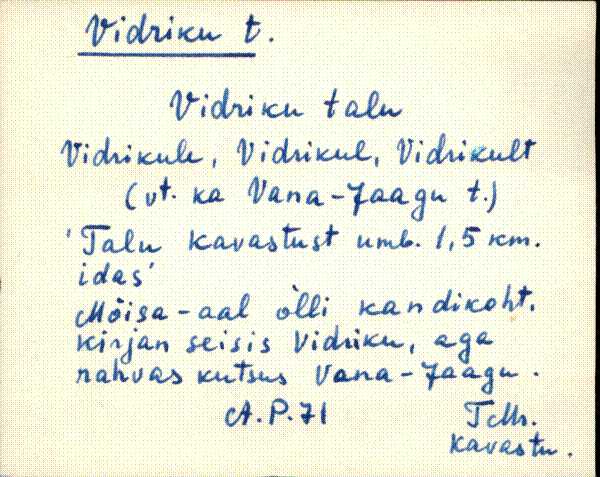 Vidriku t.
Vidriku talu
Vidrikule, Vidrikul, Vidrikult
(vt. ka Vana-Jaagu t.)
'Talu Kavastust umb. 1,5 km.
idas'
Mõisa-aal õlli kandikoht,
kirjan seisis Vidriku, aga
rahvas kutsus Vana-Jaagu.
A.P.71
TMr.
Kavastu.